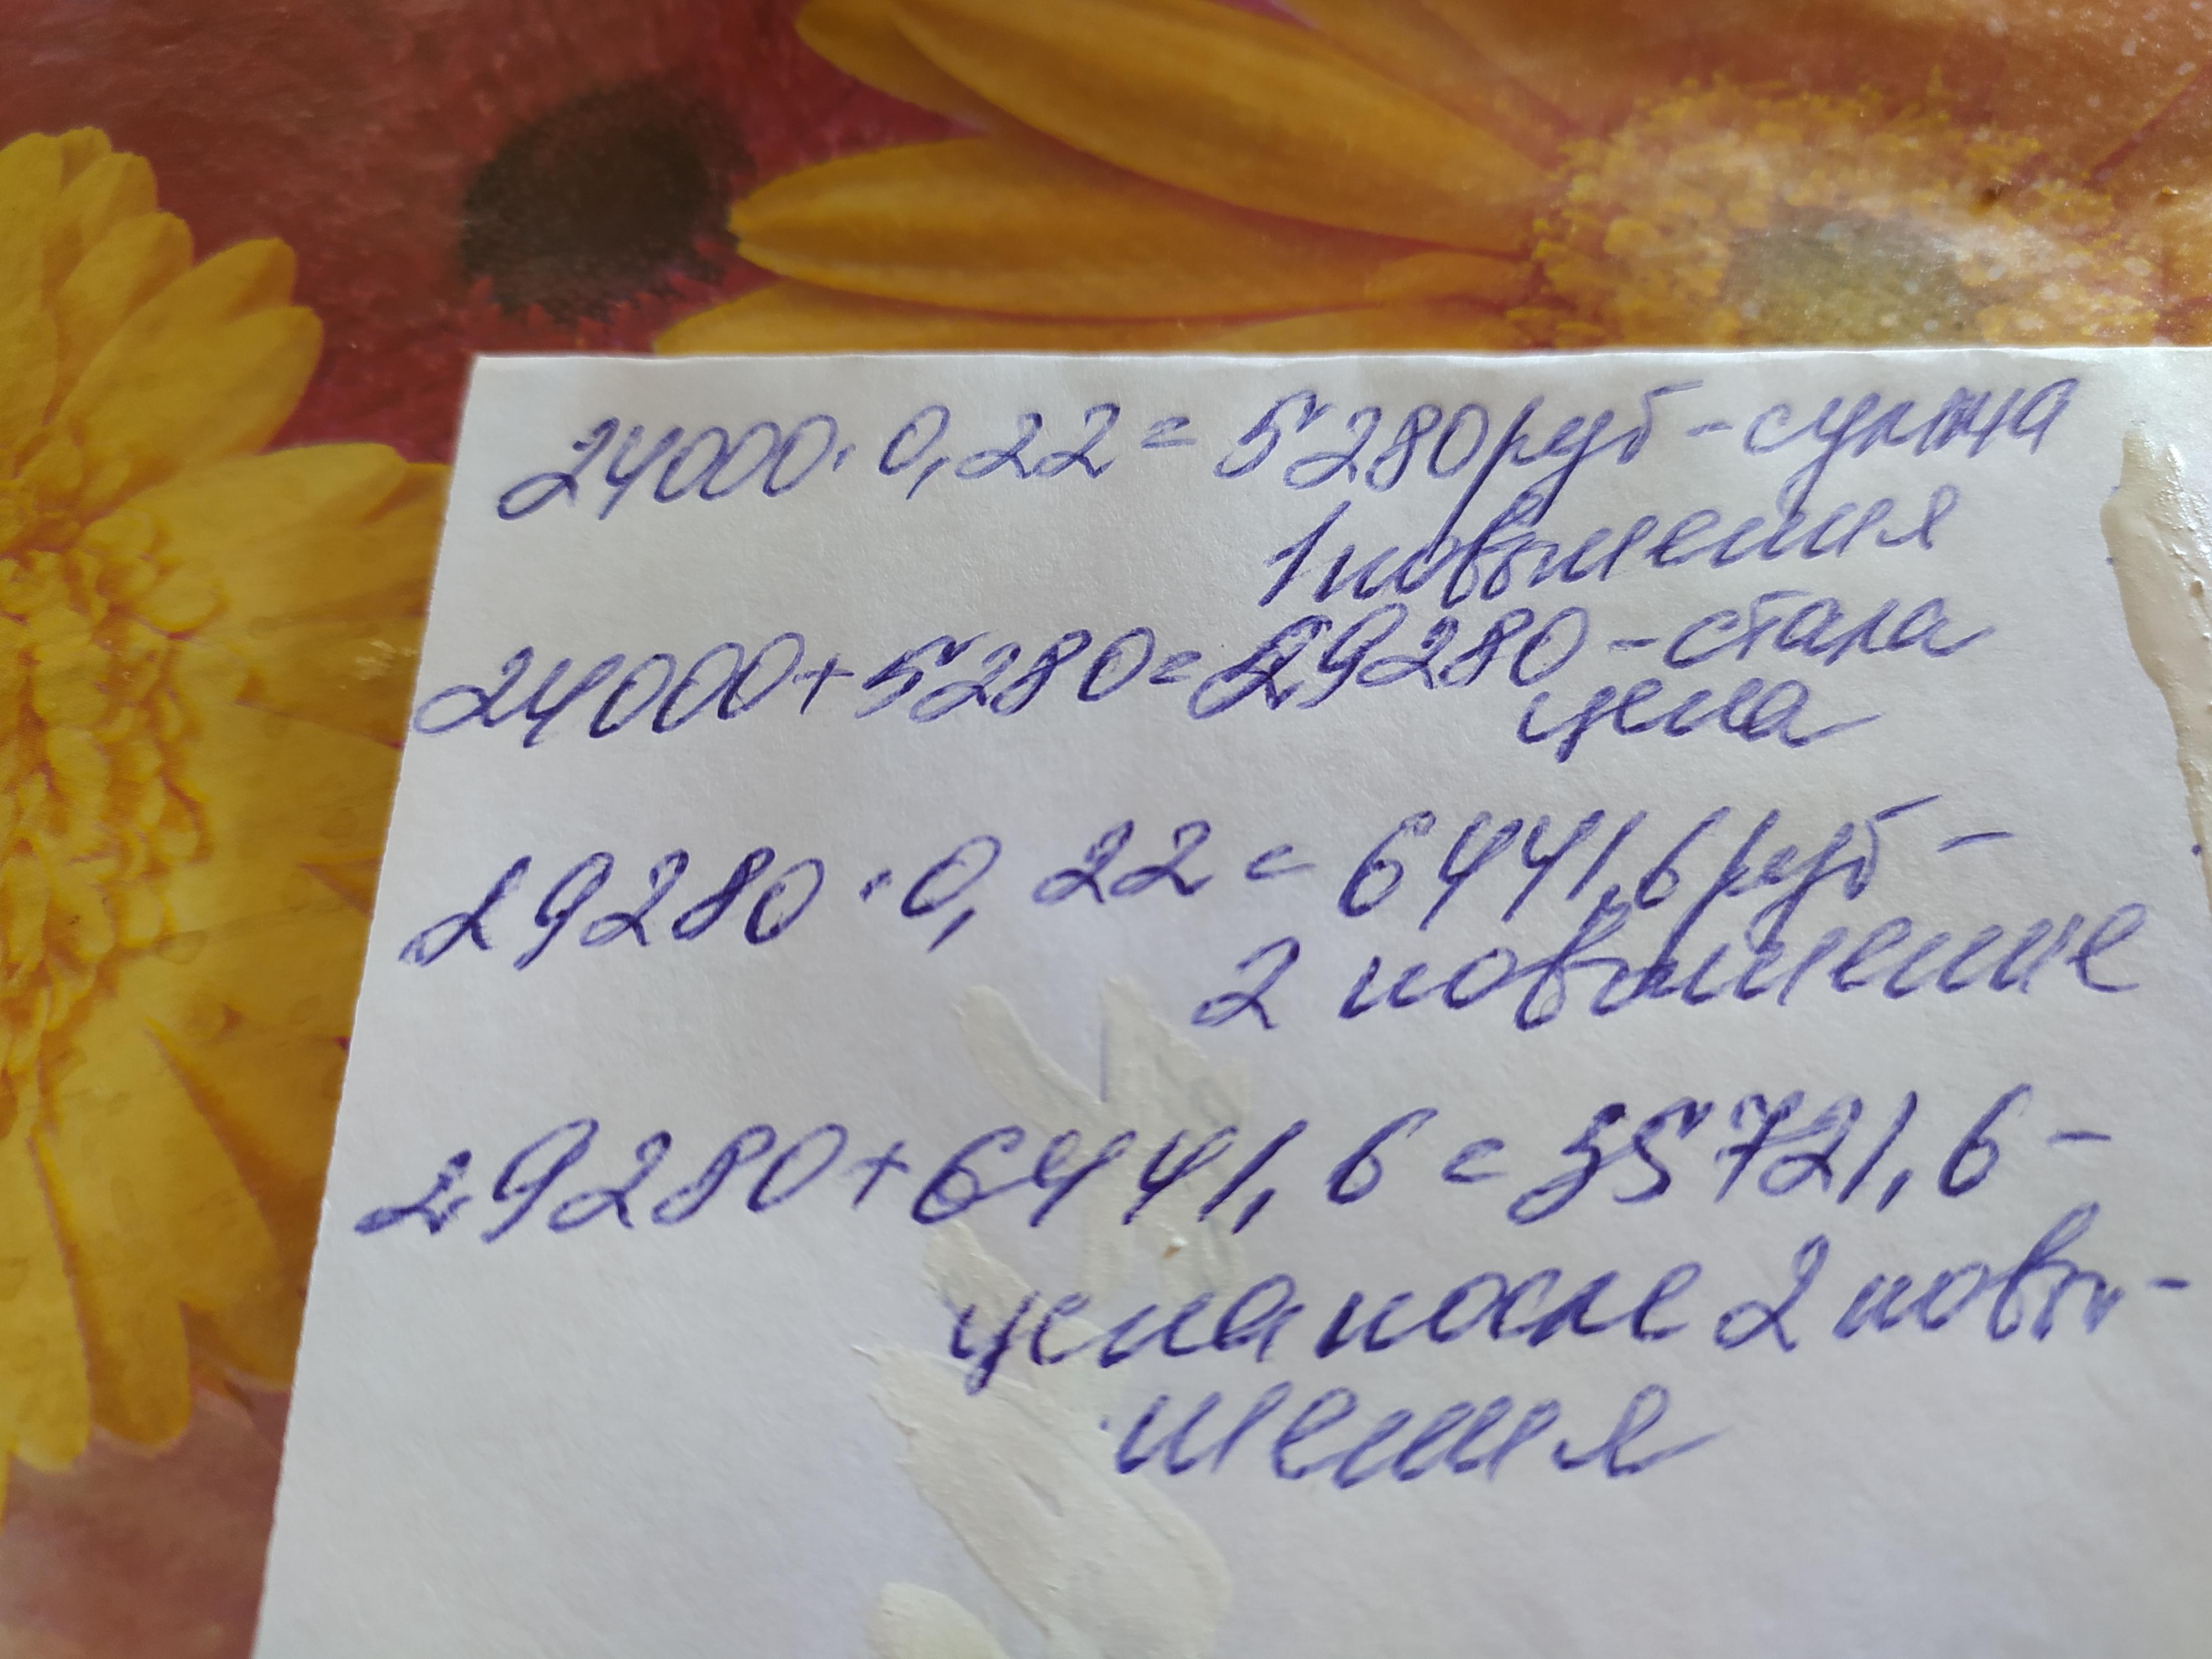 24000·0,22=5280руб-сумма
1 повышения
24000+5280=29280-стала
цена
29280·0,22=6441,6 руб-
2 повышение
29280+6441,6=35721,6-
цена после 2 повы-
шения